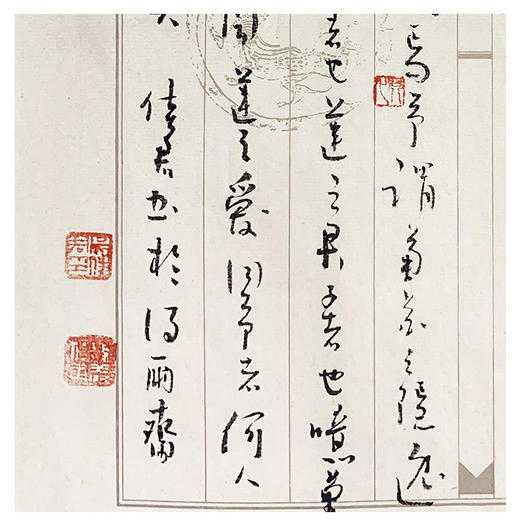 焉予謂菊花之隱逸
者也蓮之君子者也噫菊
聞蓮之愛同予者何人
矣 君書於得雨齋